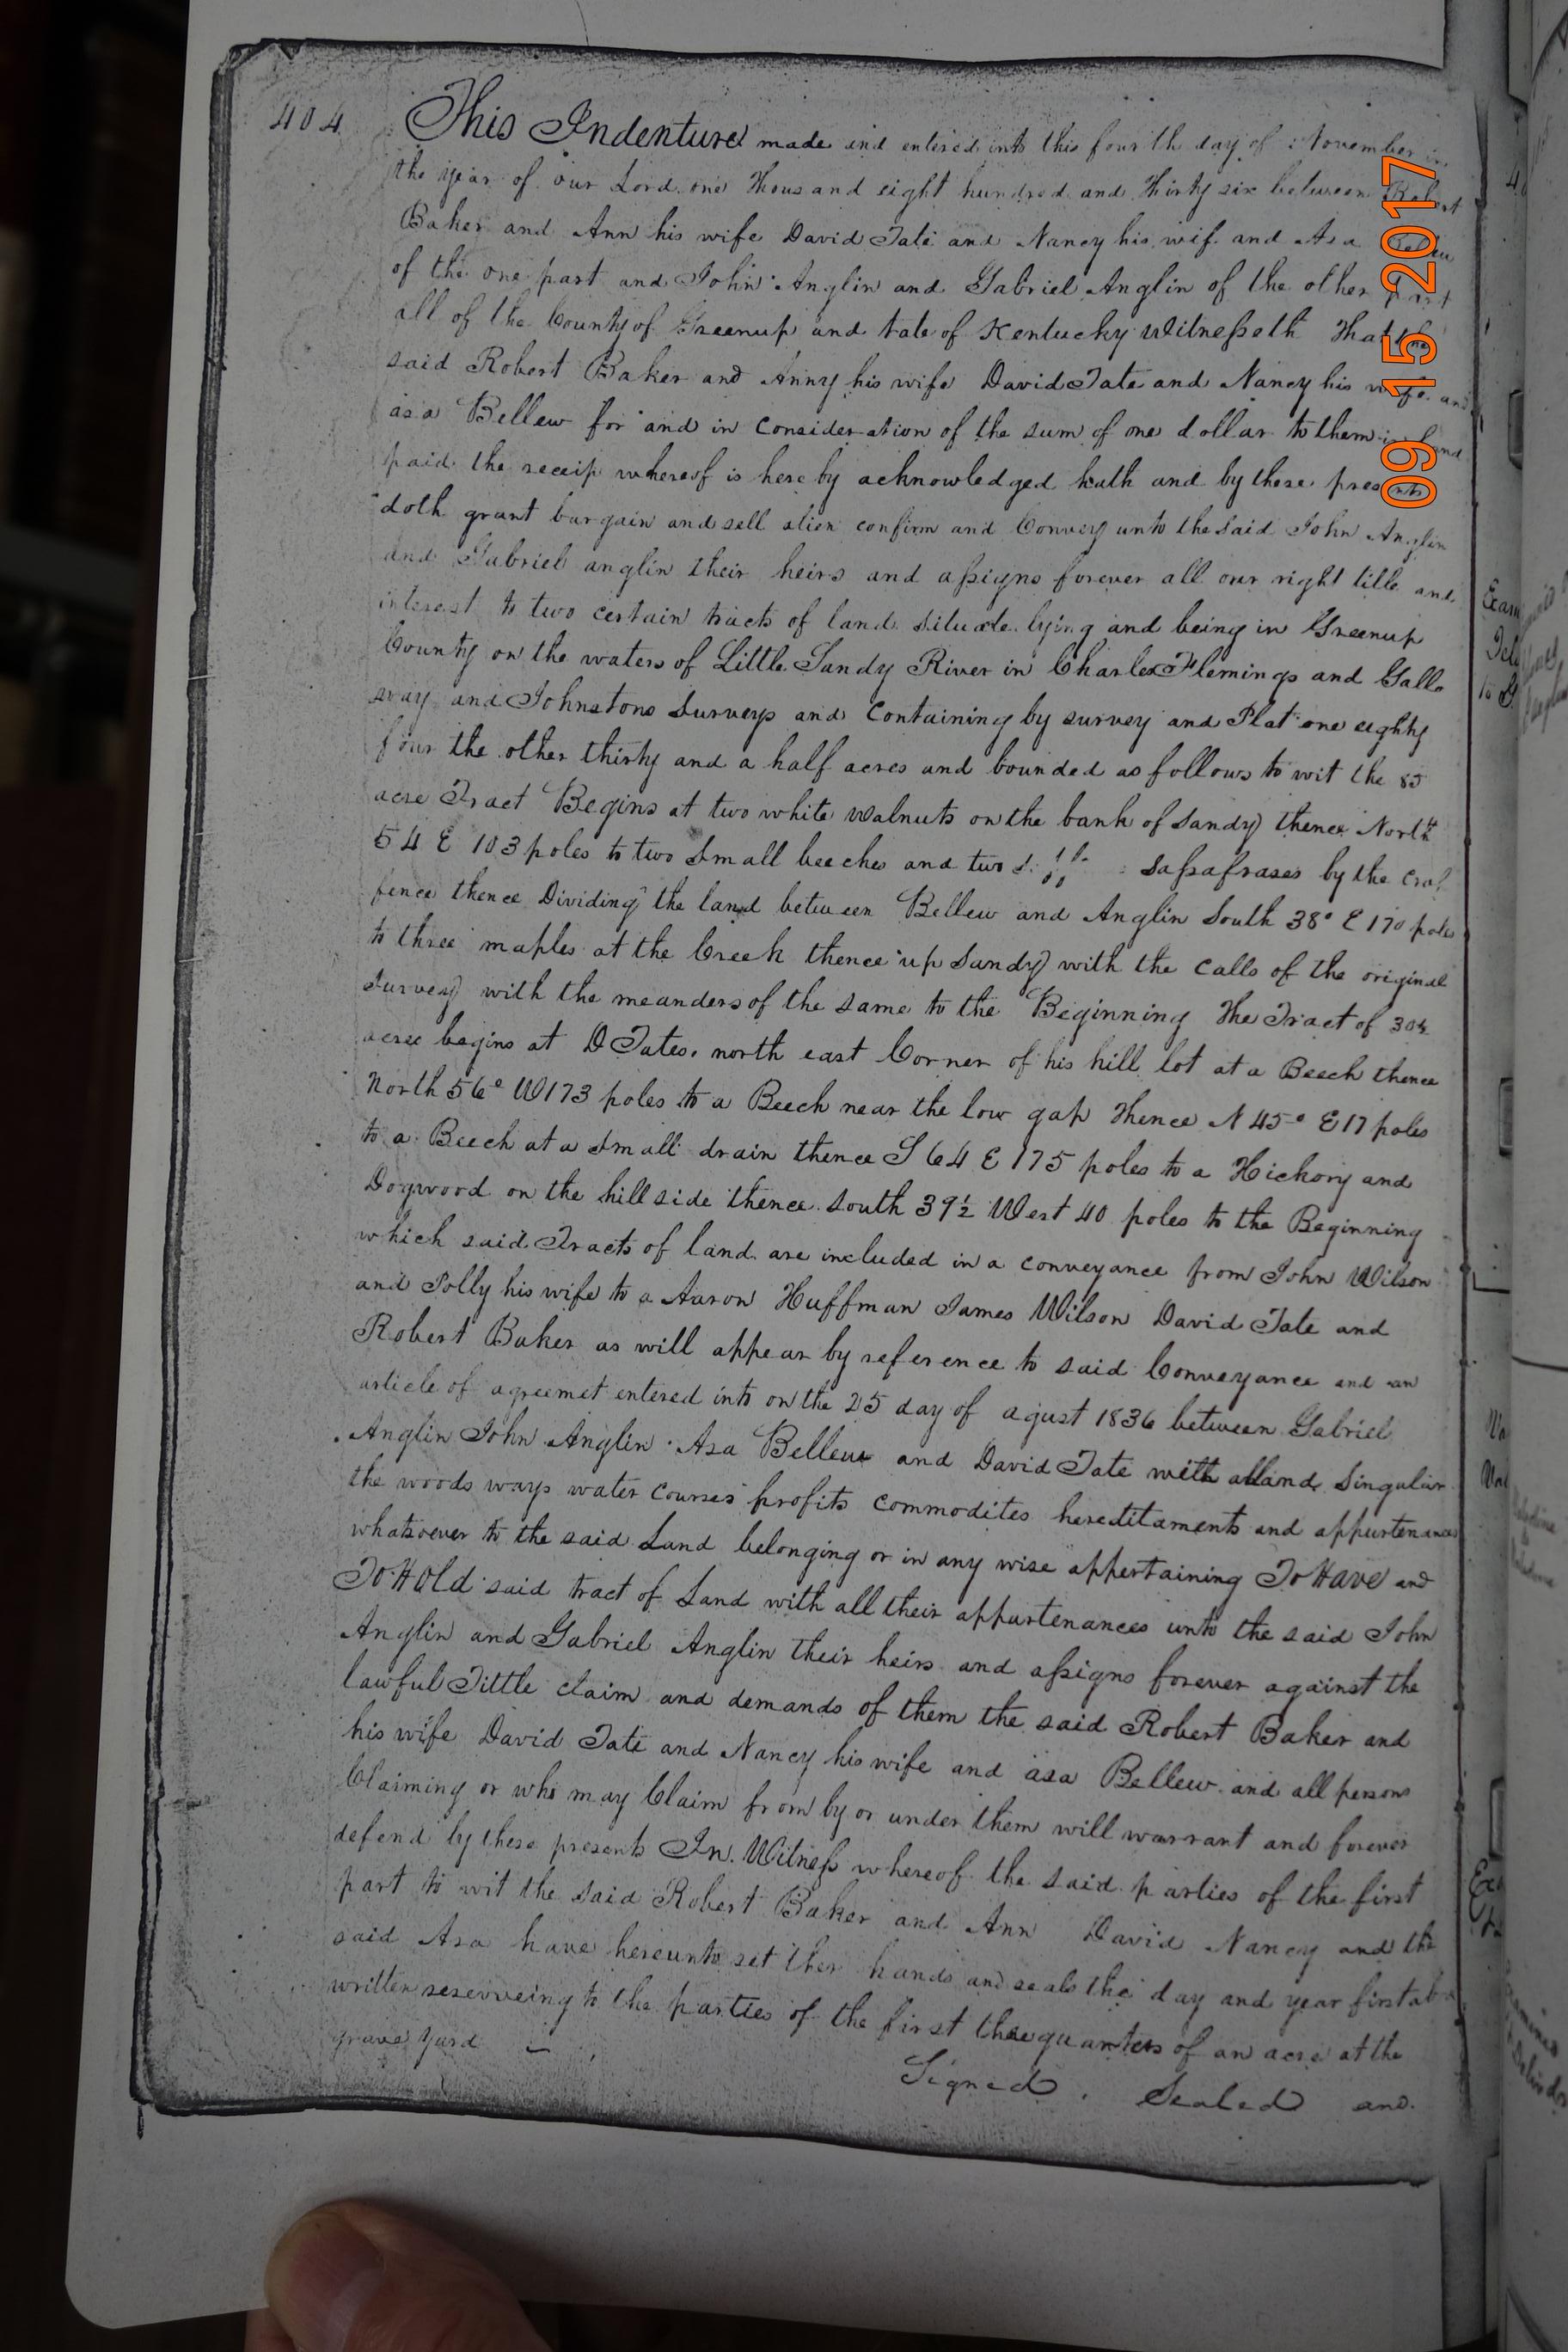 404
This Indenture made and entered into this fourth day of November in
the year of our Lord one thousand eight hundred and thirty six between Robert
Baker and Ann his wife David Tate and Nancy his wif and Asa Bellew
of the one part and John Anglin and Gabriel Anglin of the other part
all of the County of Greenup and tate of Kentucky Witnesseth That the
said Robert Baker and Anny his wife David Tate and Nancy his wife and
asa Bellew for and in consideration of the sum of one dollar to them in hand
paid the receip whereof is hereby acknowledged hath and by these presents
doth grant bargain and sell alien confirm and Convey unto the said John Anglin
and Gabriel anglin their heirs and assigns forever all our right title and
interest to two certain tracts of land situate lying and being in Greenup
County on the waters of Little Sandy River in Charles Flemings and Gallo
way and Johnstons Surveys and Containing by survey and Plat one eighty
four the other thirty and a half acres and bounded as follows to wit the 85
acre Tract Begins at two white walnuts on the bank of Sandy thence North
54 E 103 poles to two small beeches and two sassafrases by the
fence thence Dividing the land between Bellew and Anglin South 38° E 170 poles
to three maples at the Creek thence up Sandy with the calls of the original
Survey with the meanders of the same to the Beginning The Tract of 30½
acres begins at D Tates north east Corner of his hill lot at a Beech thence
North 56° W 173 poles to a Beech near the low gap Thence N 45° E 17 poles
to a Beech at a small drain thence S 64 E 175 poles to a Hickory and
Dogwood on the hill side thence south 39½ West 40 poles to the Beginning
which said Tracts of land are included in a conveyance from John Wilson
and Polly his wife to a Aaron Huffman James Wilson David Tate and
Robert Baker as will appear by reference to said Conveyance and an
article of agreemet entered into on the 25 day of agust 1836 between Gabriel
Anglin John Anglin Asa Bellew and David Tate with all and Singular
the woods ways water courses profits commodites hereditaments and appurtenances
whatsoever to the said Land belonging or in any wise appertaining To Have and
To Hold said tract of Land with all their appurtenances unto the said John
Anglin and Gabriel Anglin their heirs and assigns forever against the
lawful Tittle claim and demands of them the said Robert Baker and
his wife David Tate and Nancy his wife and asa Bellew and all persons
Claiming or who may Claim from by or under them will warrant and forever
defend by these presents In Witness whereof the said parties of the first
part to wit the said Robert Baker and Ann David Nancy and the
said Asa have hereunto set ther hands and seals the day and year first abov
written reserveing to the parties of the first three quarters of an acre at the
grave yard
Signed Sealed and
09 15 2017